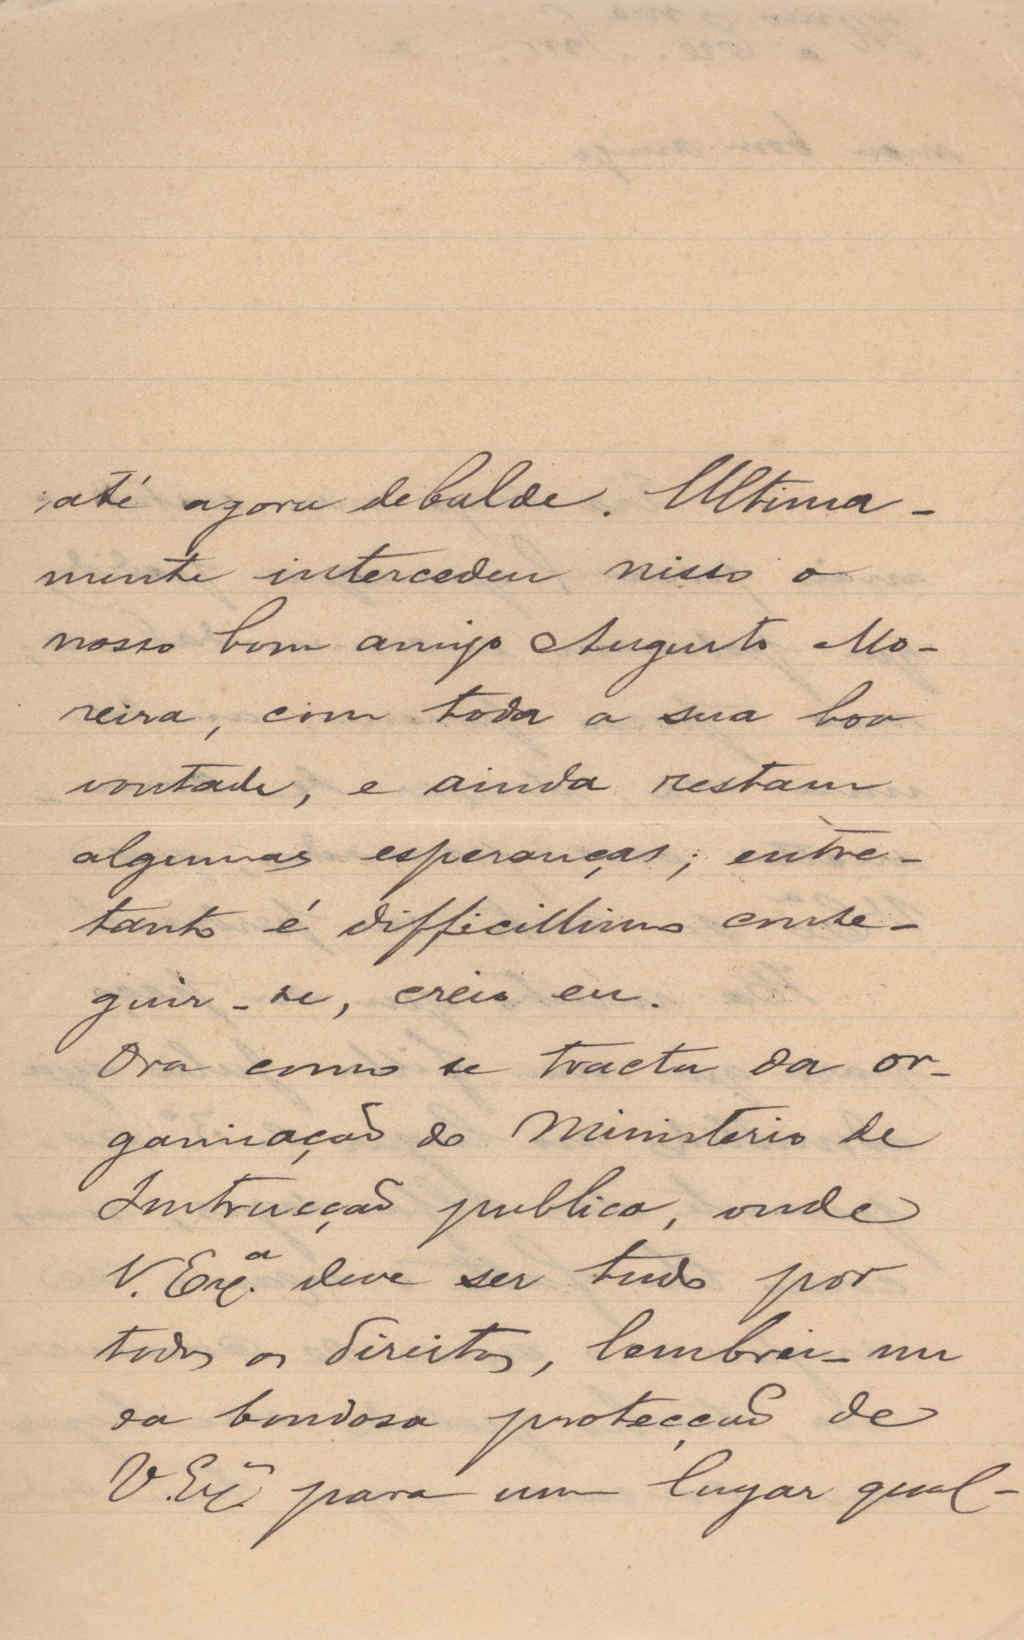 até agora debalde. Ultima-
mente intercedeu nisso o
nosso bom amigo Augusto Mo-
reira, com toda a sua boa
vontade, e ainda restam
algumas esperanças; entre-
tanto é difficillimo conse-
guir-se, creio eu.
Ora como se tracta da or-
ganisação do Ministerio de
Instrucção publica, onde
V. Exª. deve ser tudo por
todos os direitos, lembrei-me
da bondosa protecção de
V. Exª. para um lugar qual-